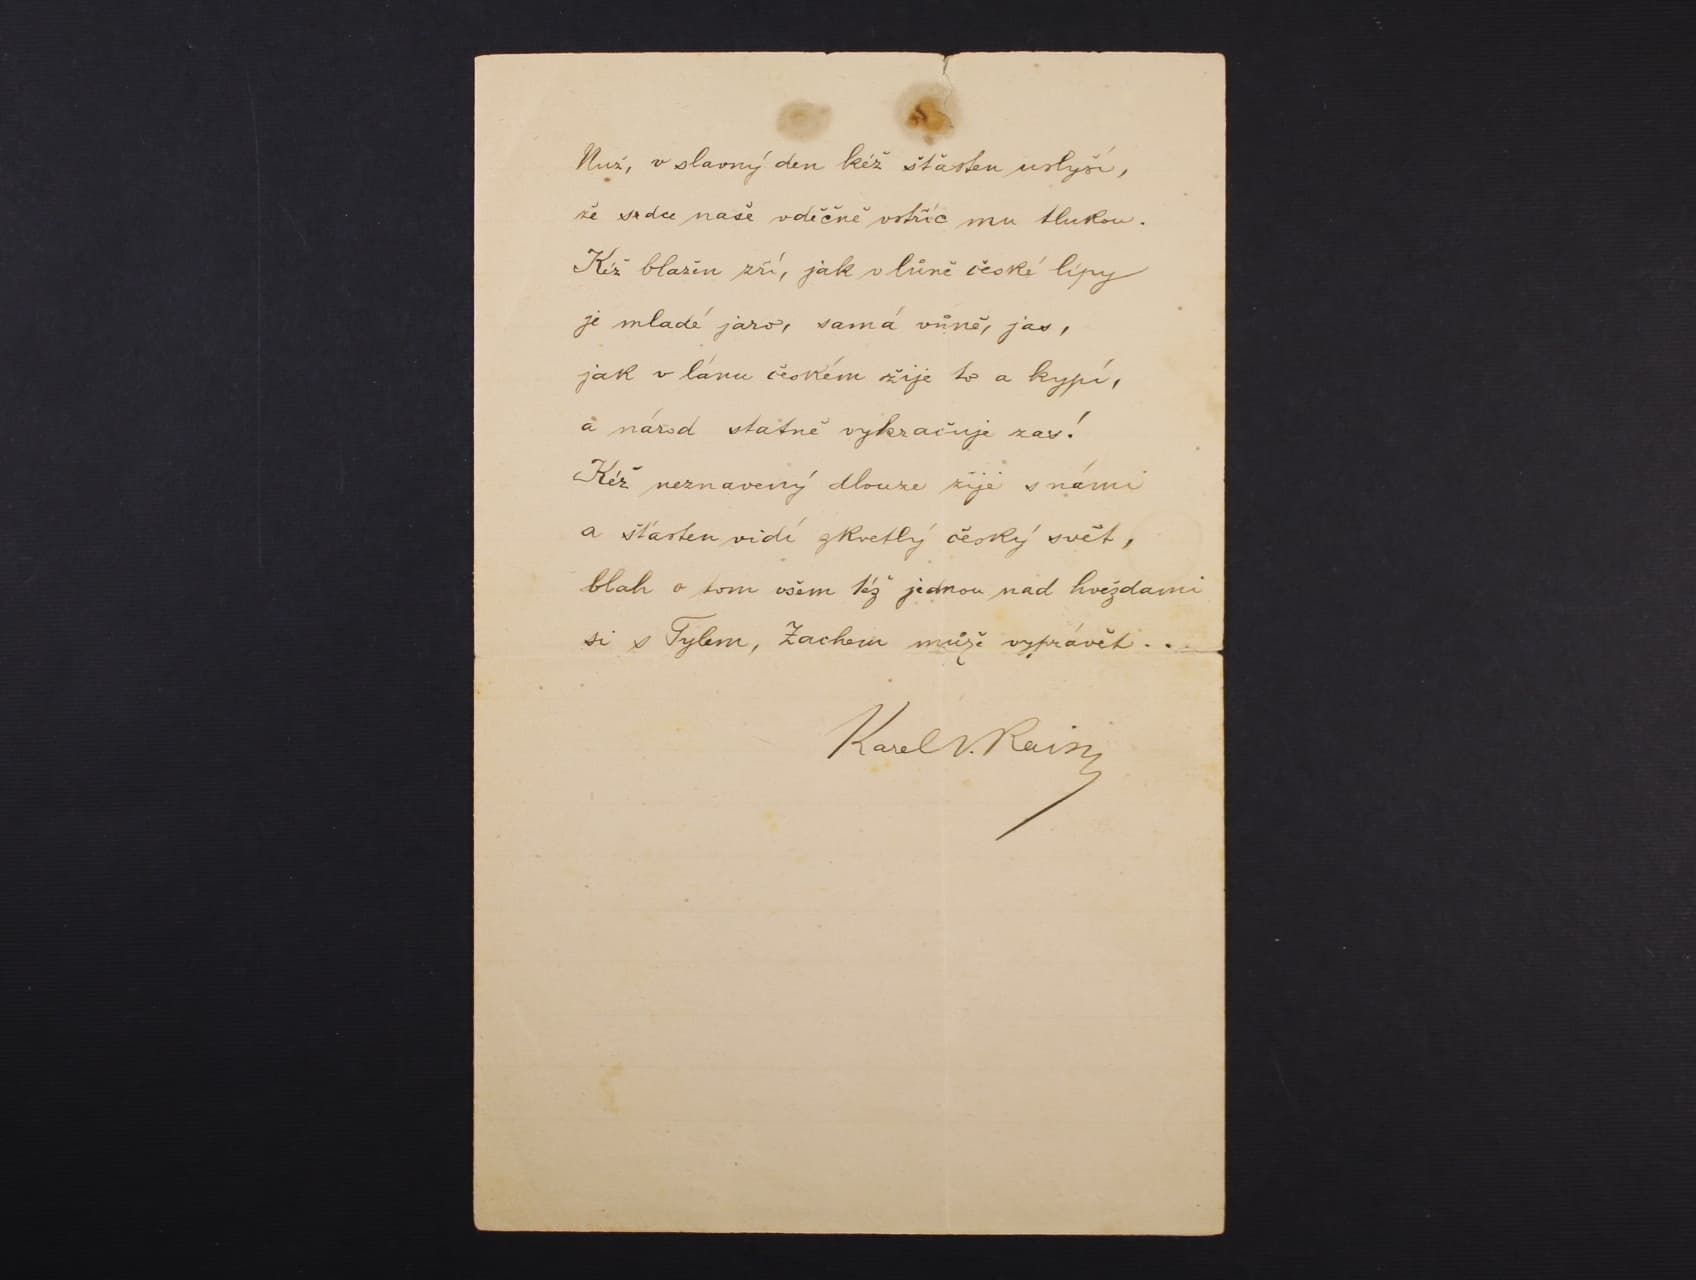 Nuž, v slavný den kéž šťasten uslyší,
že srdce naše vděčně vstříc mu tlukou.
Kéž blažen zří, jak v lůně české lípy
je mladé jaro, samá vůně, jas,
jak v lánu českém žije to a kypí,
a národ statně vykračuje zas!
Kéž neznavený dlouze žije s námi
a šťasten vidí zkvetlý český svět,
blah o tom všem též jednou nad hvězdami
si s Tylem, Zachem může vyprávět . .
Karel V. Rais